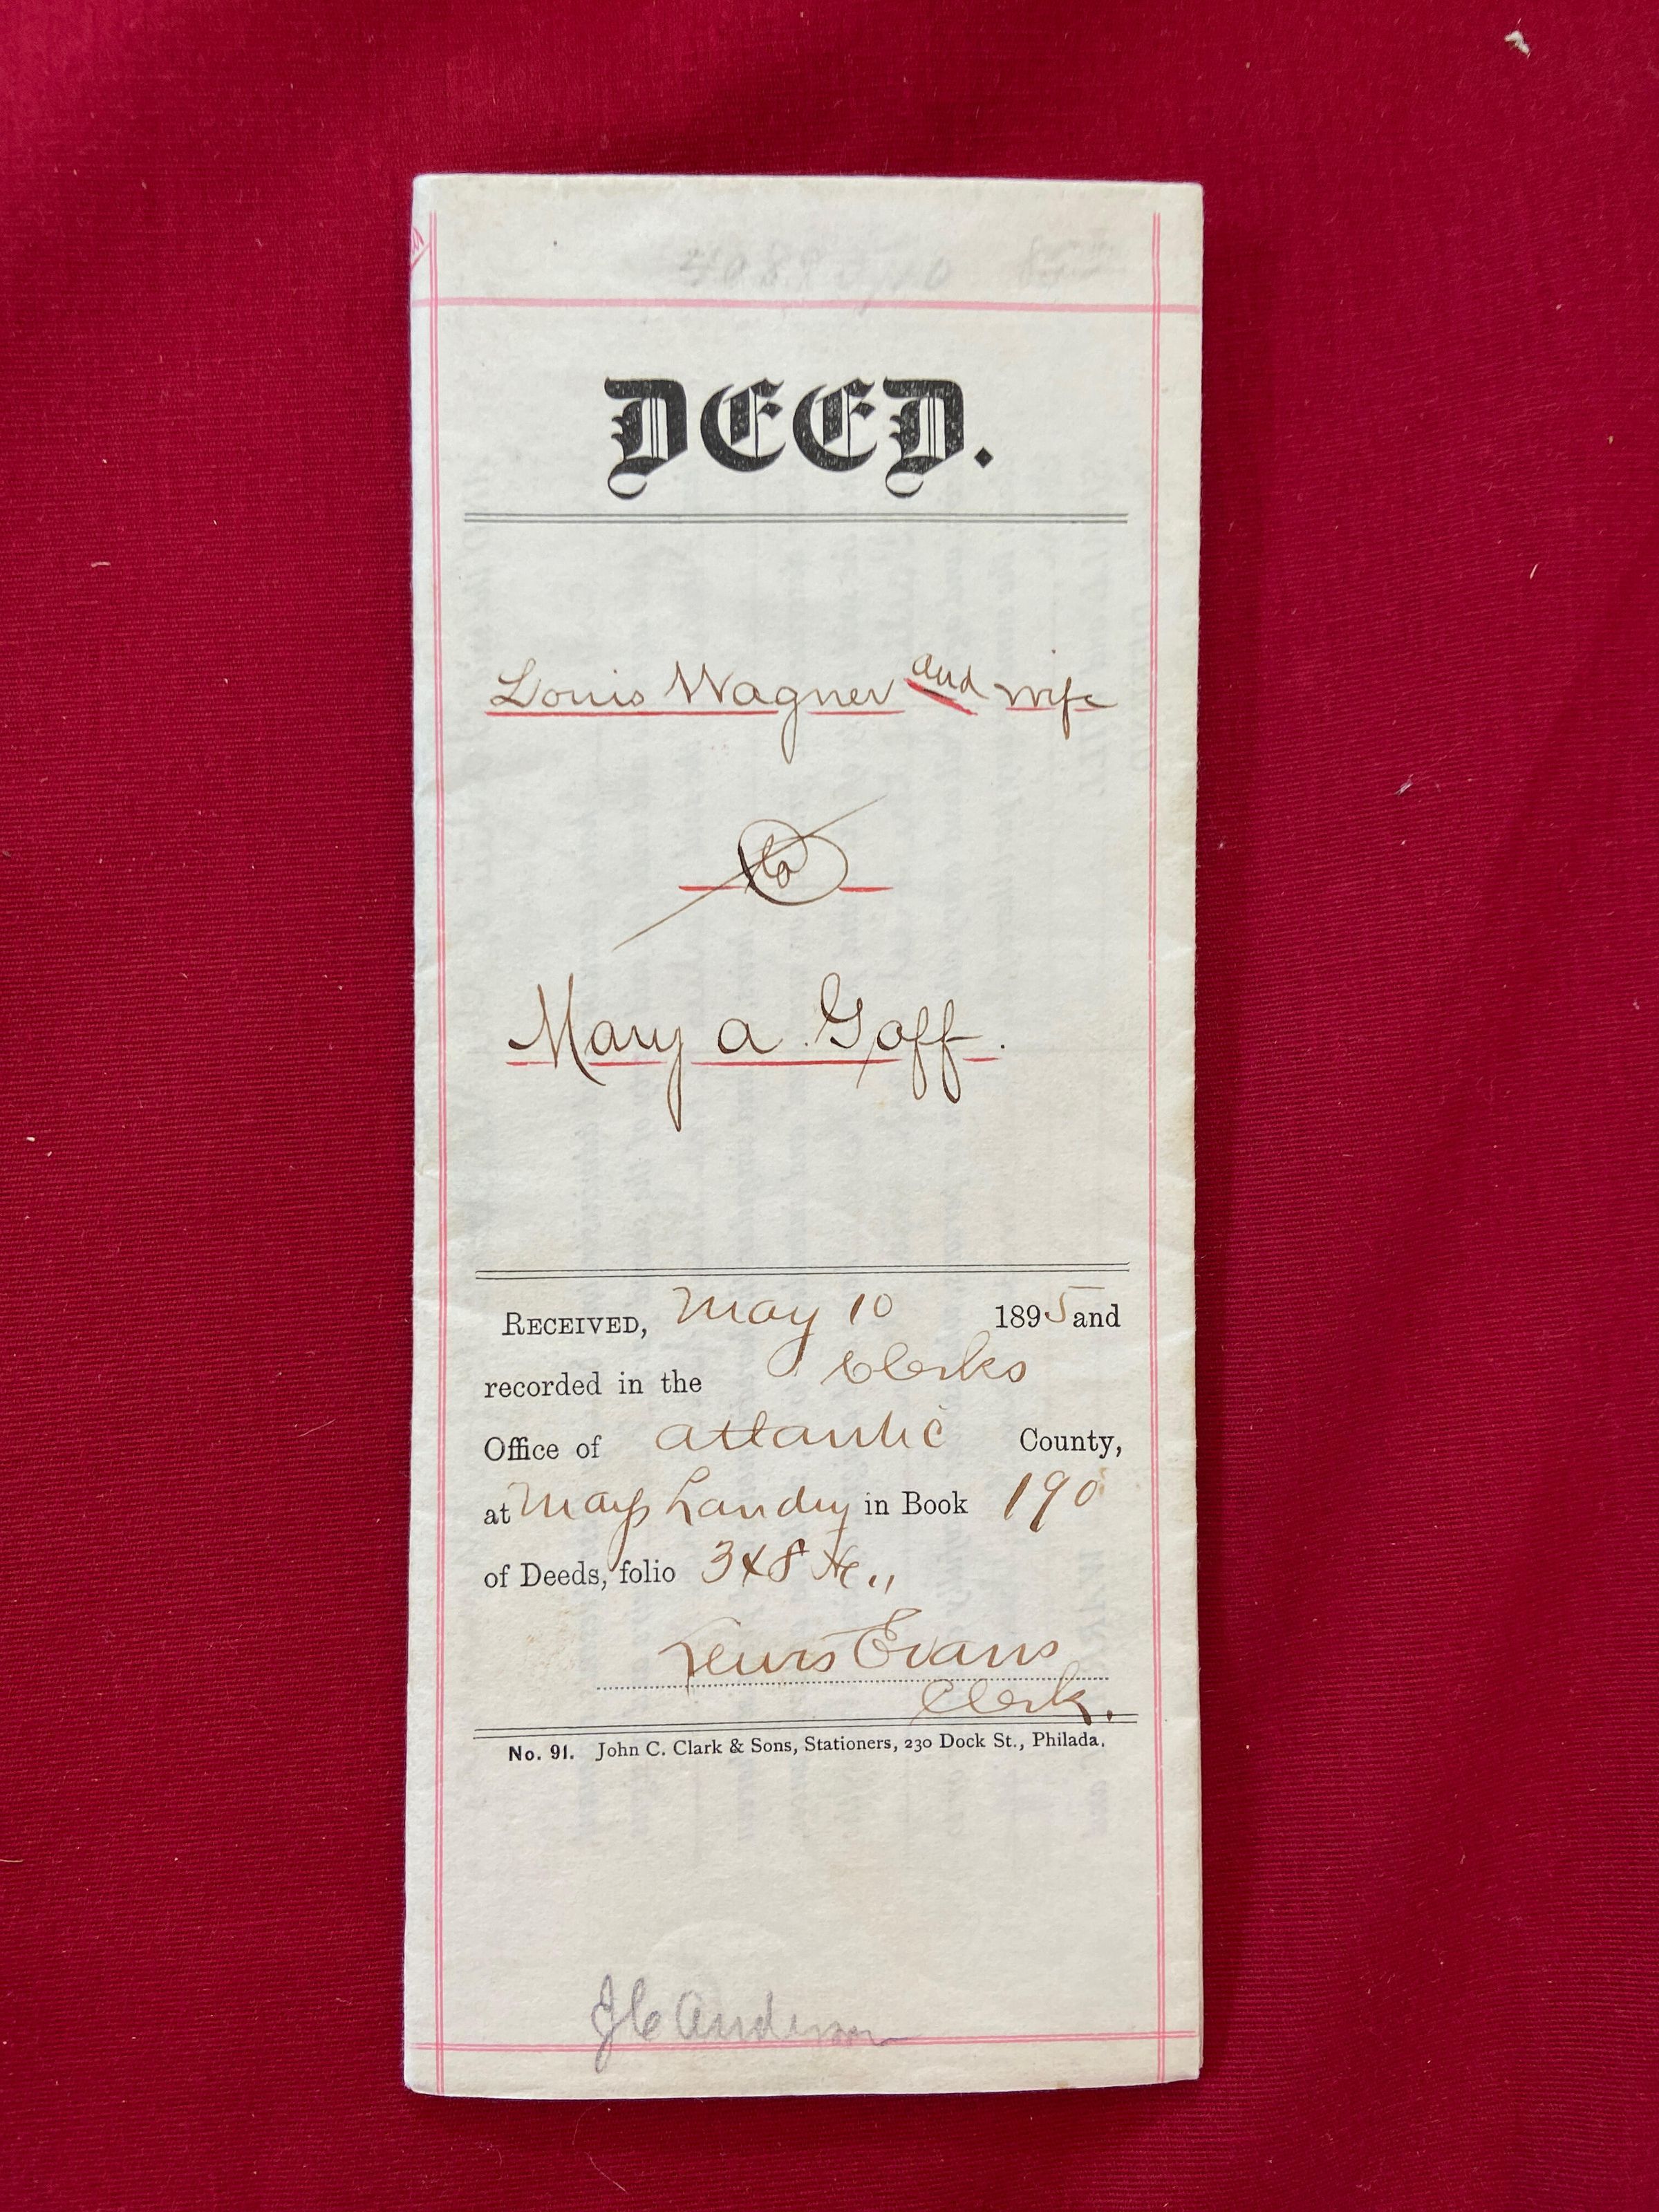 DEED.
Louis Wagner and wife
to
Mary A. Goff.
RECEIVED, May 10 1895 and
recorded in the Clerks
Office of Atlantic County,
at Mays Landing in Book 190
of Deeds, folio 348 &c.,
Lewis Evans
Clerk.
No. 91. John C. Clark & Sons, Stationers, 230 Dock St., Philada.
J C Anderson